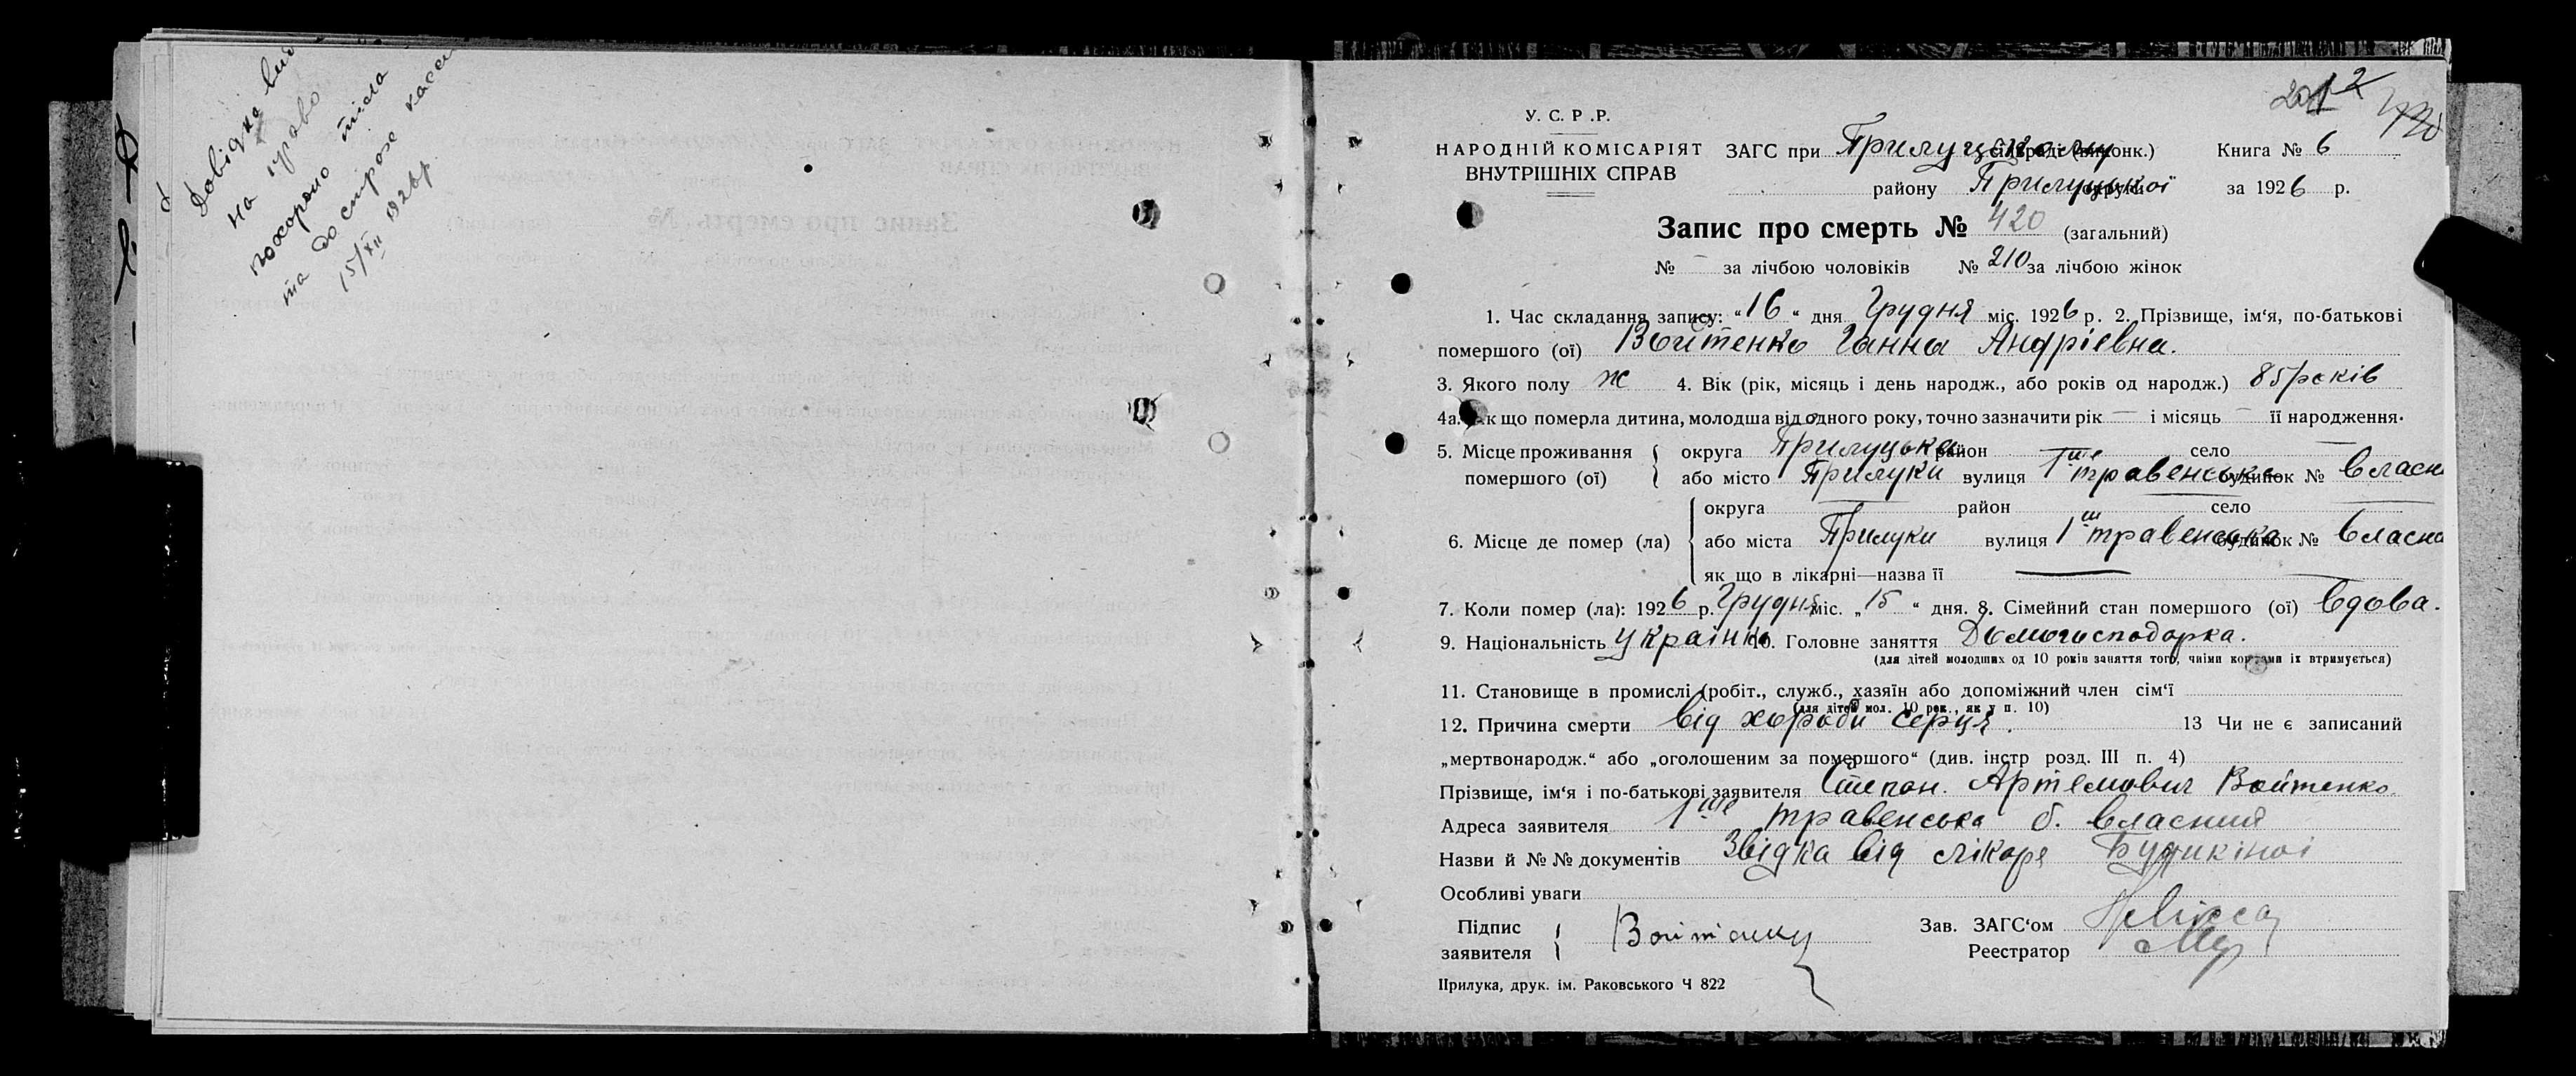 Довідка вид
на право
похорону тіла
та до страх каси
15/XII 1926 р.
2012
У. С. Р .Р.
НАРОДНІЙ КОМІСАРІЯТ
ВНУТРІШНІХ СПРАВ
ЗАГС при Прилуцькому сільраді (виконк.) Книга № 6
району Прилуцької округи за 1926 р.
Запис про смерть № 420 (загальний)
№ – за лічбою чоловіків № 210 за лічбою жінок
1. Час складання запису: “16“ дня Грудня міс. 1926 р. 2. Прізвище, ім‘я, по-батькові
помершого (ої) Войтенко Ганна Андрієвна.
3. Якого полу ж 4. Вік (рік, місяць і день народж., або років од народж.) 85 років
4а. Як що померла дитина, молодша від одного року, точно зазначити рік — і місяць — її народження.
5. Місце проживання помершого (ої) округа Прилуцька район село —
або місто Прилуки вулиця 1ше травенська будинок № власн
6. Місце де помер (ла) округа район село
або міста Прилуки вулиця 1ш травенська будинок № власн
як що в лікарні—назва її —
7. Коли помер (ла): 1926 р. Грудня міс. „15“ дня. 8. Сімейний стан помершого (ої) вдова.
9. Національність українка 10. Головне заняття Домогосподарка.
(для дітей молодших од 10 років заняття того, чиїми коштами їх втримується)
11. Становище в промислі (робіт., служб., хазяїн або допоміжний член сім‘ї
(для дітей мол. 10 рок., як у п. 10)
12. Причина смерти від хороби серця. 13 Чи не є записаний
„мертвонародж.“ або „оголошеним за помершого“ (див. інстр розд. III п. 4)
Прізвище, ім‘я і по-батькові заявителя Степан. Артемович Войтенко.
Адреса заявителя 1ше травенська б. власний
Назви й № № документів Звідка від лікаря
Особливі уваги
Підпис заявителя Войтенку
Зав. ЗАГС‘ом
Реестратор
Прилука, друк. ім. Раковського Ч 822